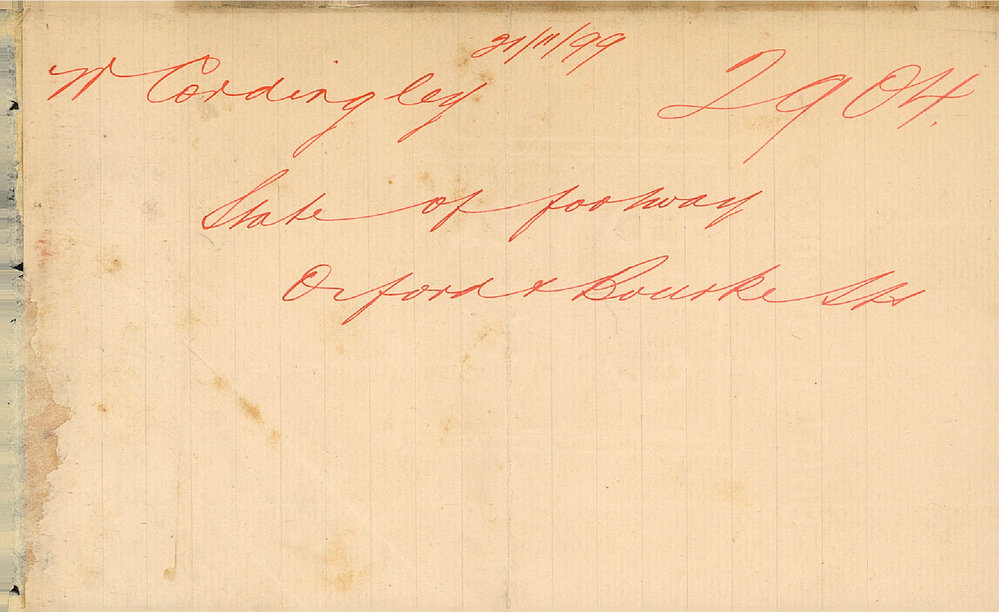 21/11/99
W Cordingley 2904.
State of footway
Oxford & Bourke Sts